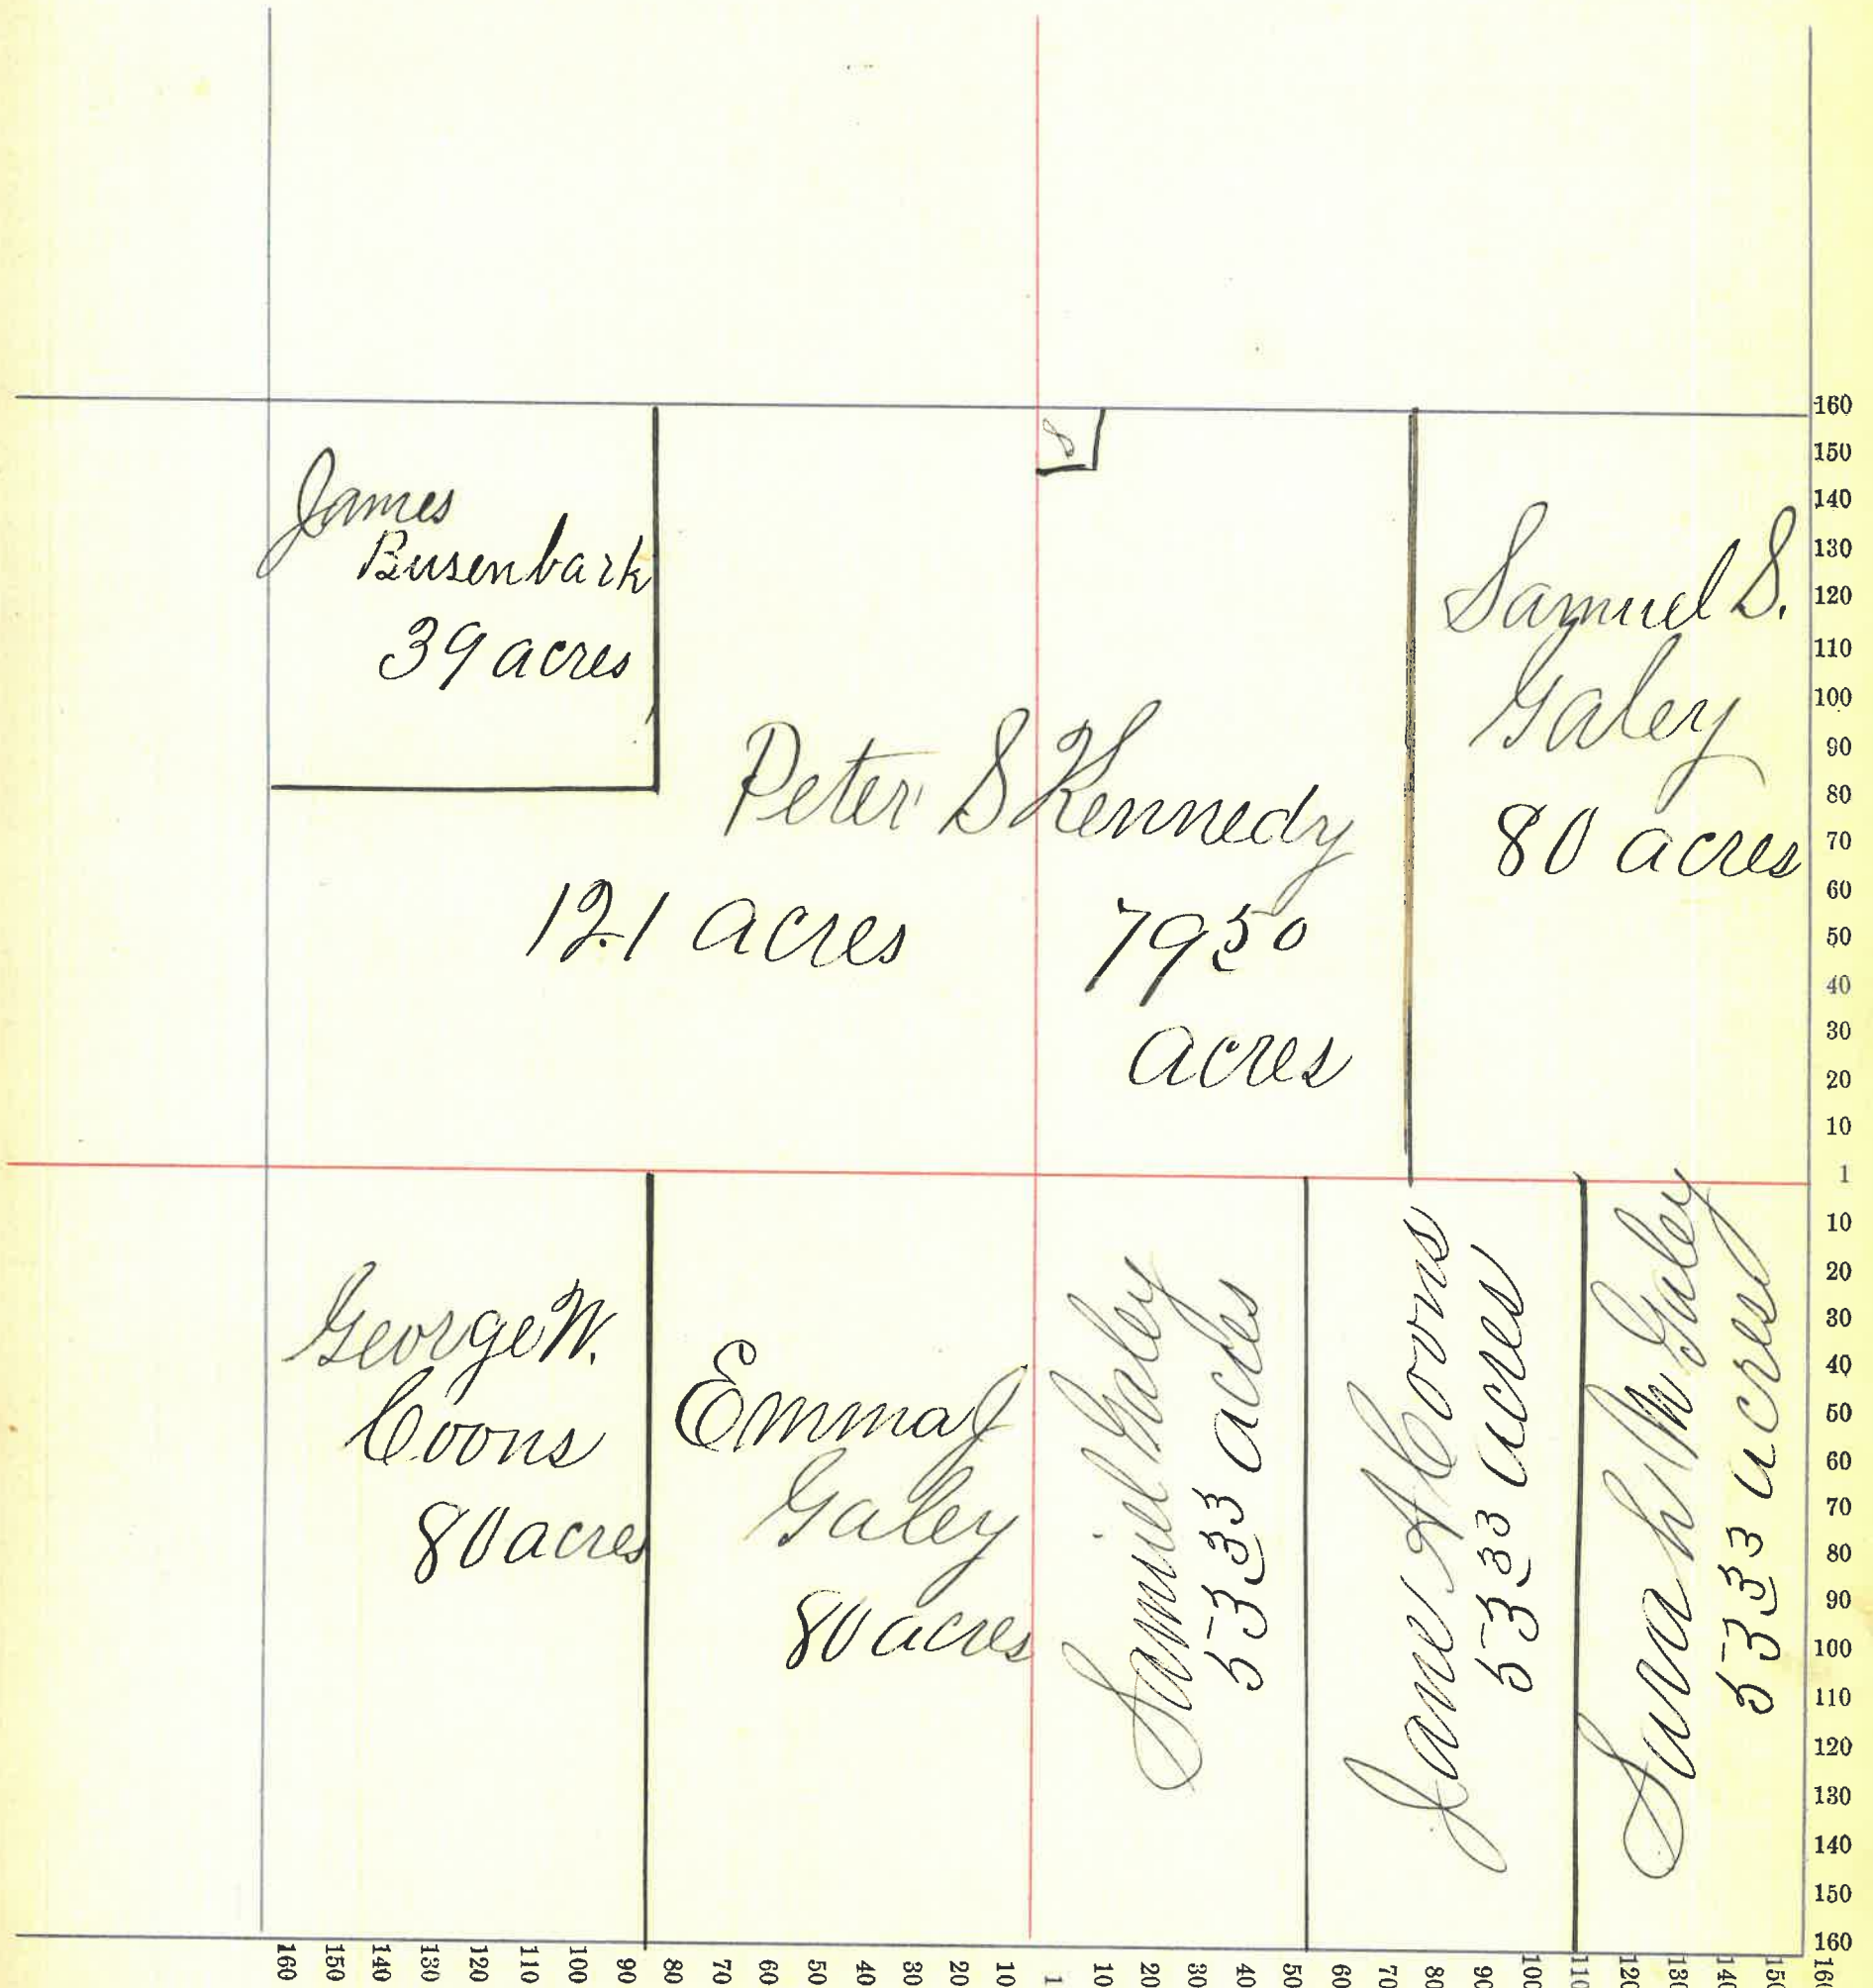 James
Busenbark
39 acres
Peter S Kennedy
121 acres
79 50
acres
Samuel S.
Galey
80 acres
George W.
Coons
80 acres
Emma J
Galey
80 acres
Samuel Galey
53 33 acres
Jane A Coons
53 33 acres
Sarah M Galey
53 33 acres
160
150
140
130
120
110
100
90
80
70
60
50
40
30
20
10
1
10
20
30
40
50
60
70
80
90
100
110
120
130
140
150
160
160 150 140 130 120 110 100 90 80 70 60 50 40 30 20 10 1 10 20 30 40 50 60 70 80 90 100 110 120 130 140 150 160